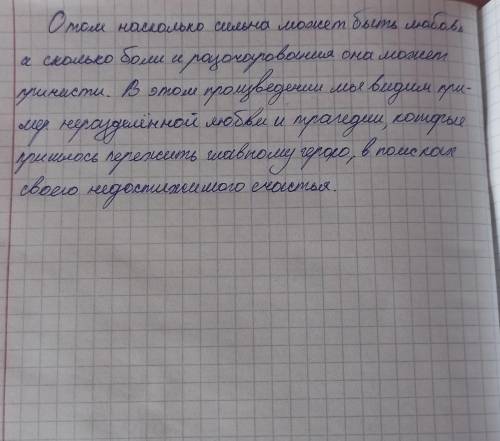 О том насколько сильна может быть любовь,
а сколько боли и разочарования она может
принисти. В этом произведении мы видим при-
мер неразделённой любви и трагедии, которые
пришлось пережить главному герою, в поисках
своего недостижимого счастья.